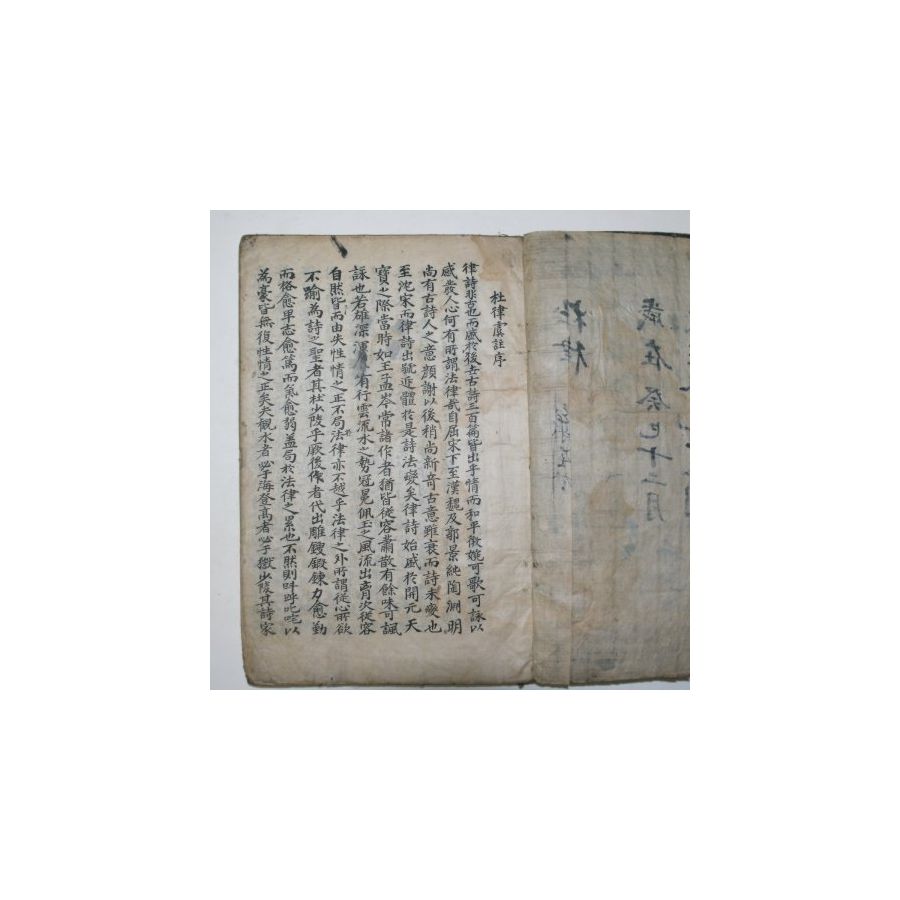 歲在癸巳十二月
杜律
杜律虞註序
律詩非古也而盛於後世古詩三百篇皆出乎情而和平微婉可歌可詠以
感發人心何有所謂法律哉自屈宋下至漢魏及郭景純陶淵明
尚有古詩人之意顏謝以後稍尚新奇古意雖衰而詩未變也
至沈宋而律詩出號近體於是詩法變矣律詩始盛於開元天
寶之際當時如王孟岑常諸作者猶皆從容蕭散有餘味可諷
詠也若雄深渾厚有行雲流水之勢冠冕佩玉之風流出胷次從容
自然皆而由夫性情之正不局法律亦不越乎法律之外所謂從心所欲
不踰為詩之聖者其杜少陵乎厥後作者代出雕鎪鍛鍊力愈勤
而格愈卑志愈篤而氣愈弱盖局於法律之累也不然則叫呼叱咤以
為豪皆無復性情之正矣夫觀水者必于海登高者必于嶽少陵其詩家